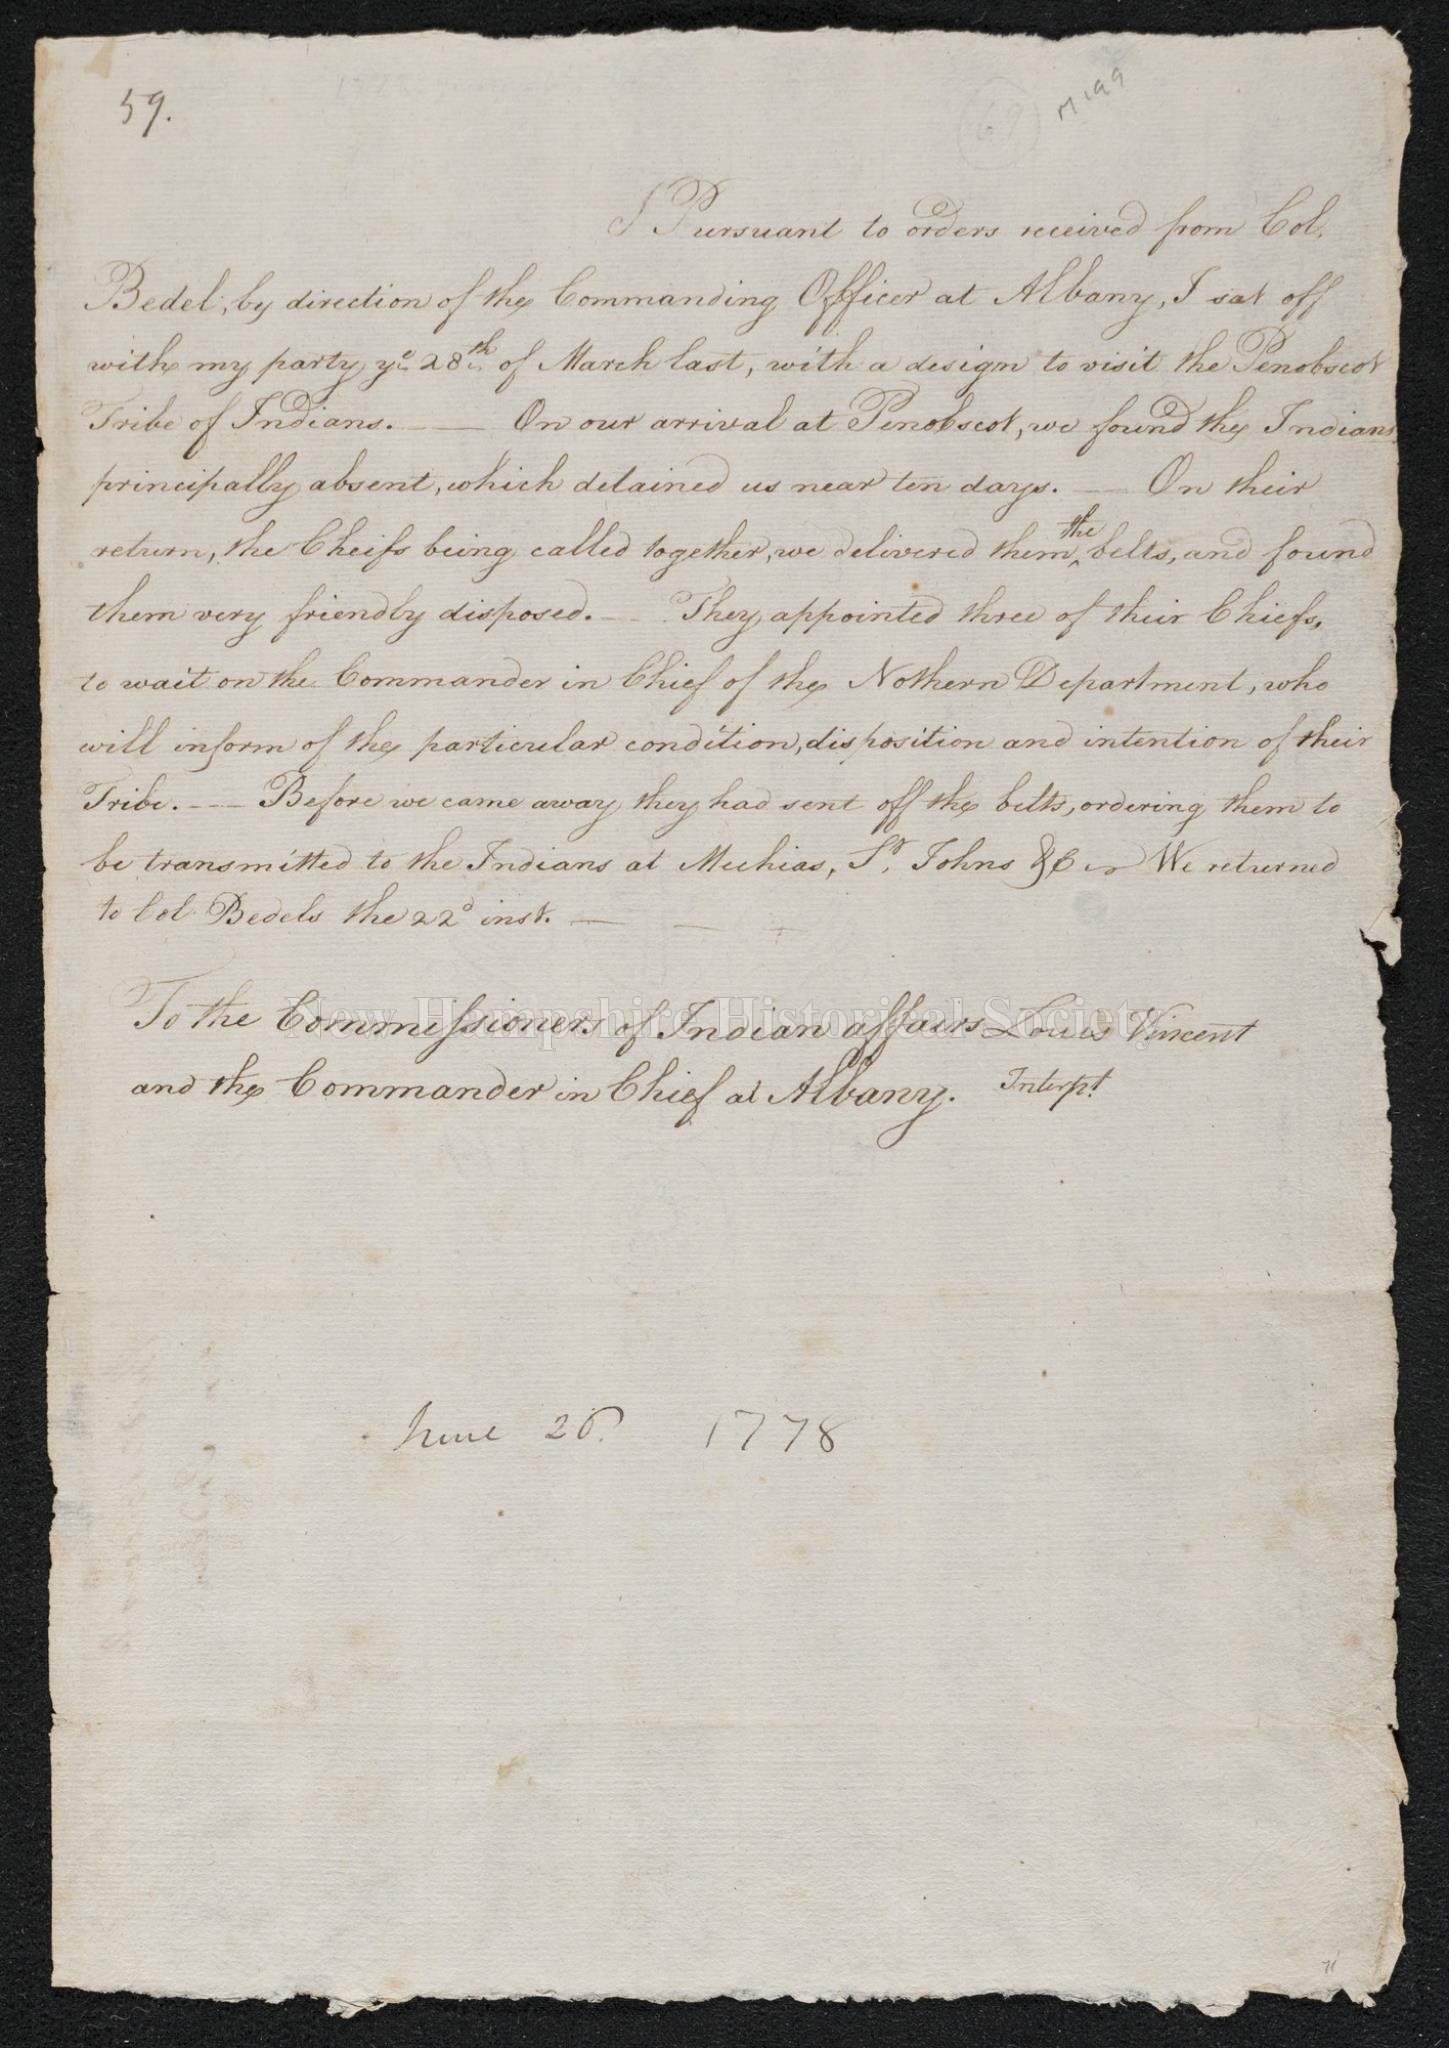 59.
69
M199
Pursuant to orders received from Col.
Bedel, by direction of the Commanding Officer at Albany, I sat off
with my party ye 28th of March last, with a design to visit the Penobscot
Tribe of Indians. — On our arrival at Penobscot, we found the Indians
principally absent, which detained us near ten days. — On their
return, the Cheifs being called together, we delivered them ^the belts, and found
them very friendly disposed. — They appointed three of their Chiefs,
to wait on the Commander in Chief of the Nothern Department, who
will inform of the particular condition, disposition and intention of their
Tribe. — Before we came away they had sent off the belts, ordering them to
be transmitted to the Indians at Mechias, St. Johns &C — We returned
to Col Bedels the 22d inst. —
To the Commissioners of Indian affairs Louis Vincent
and the Commander in Chief at Albany. Interpt
New Hampshire Historical Society
June 26. 1778
71